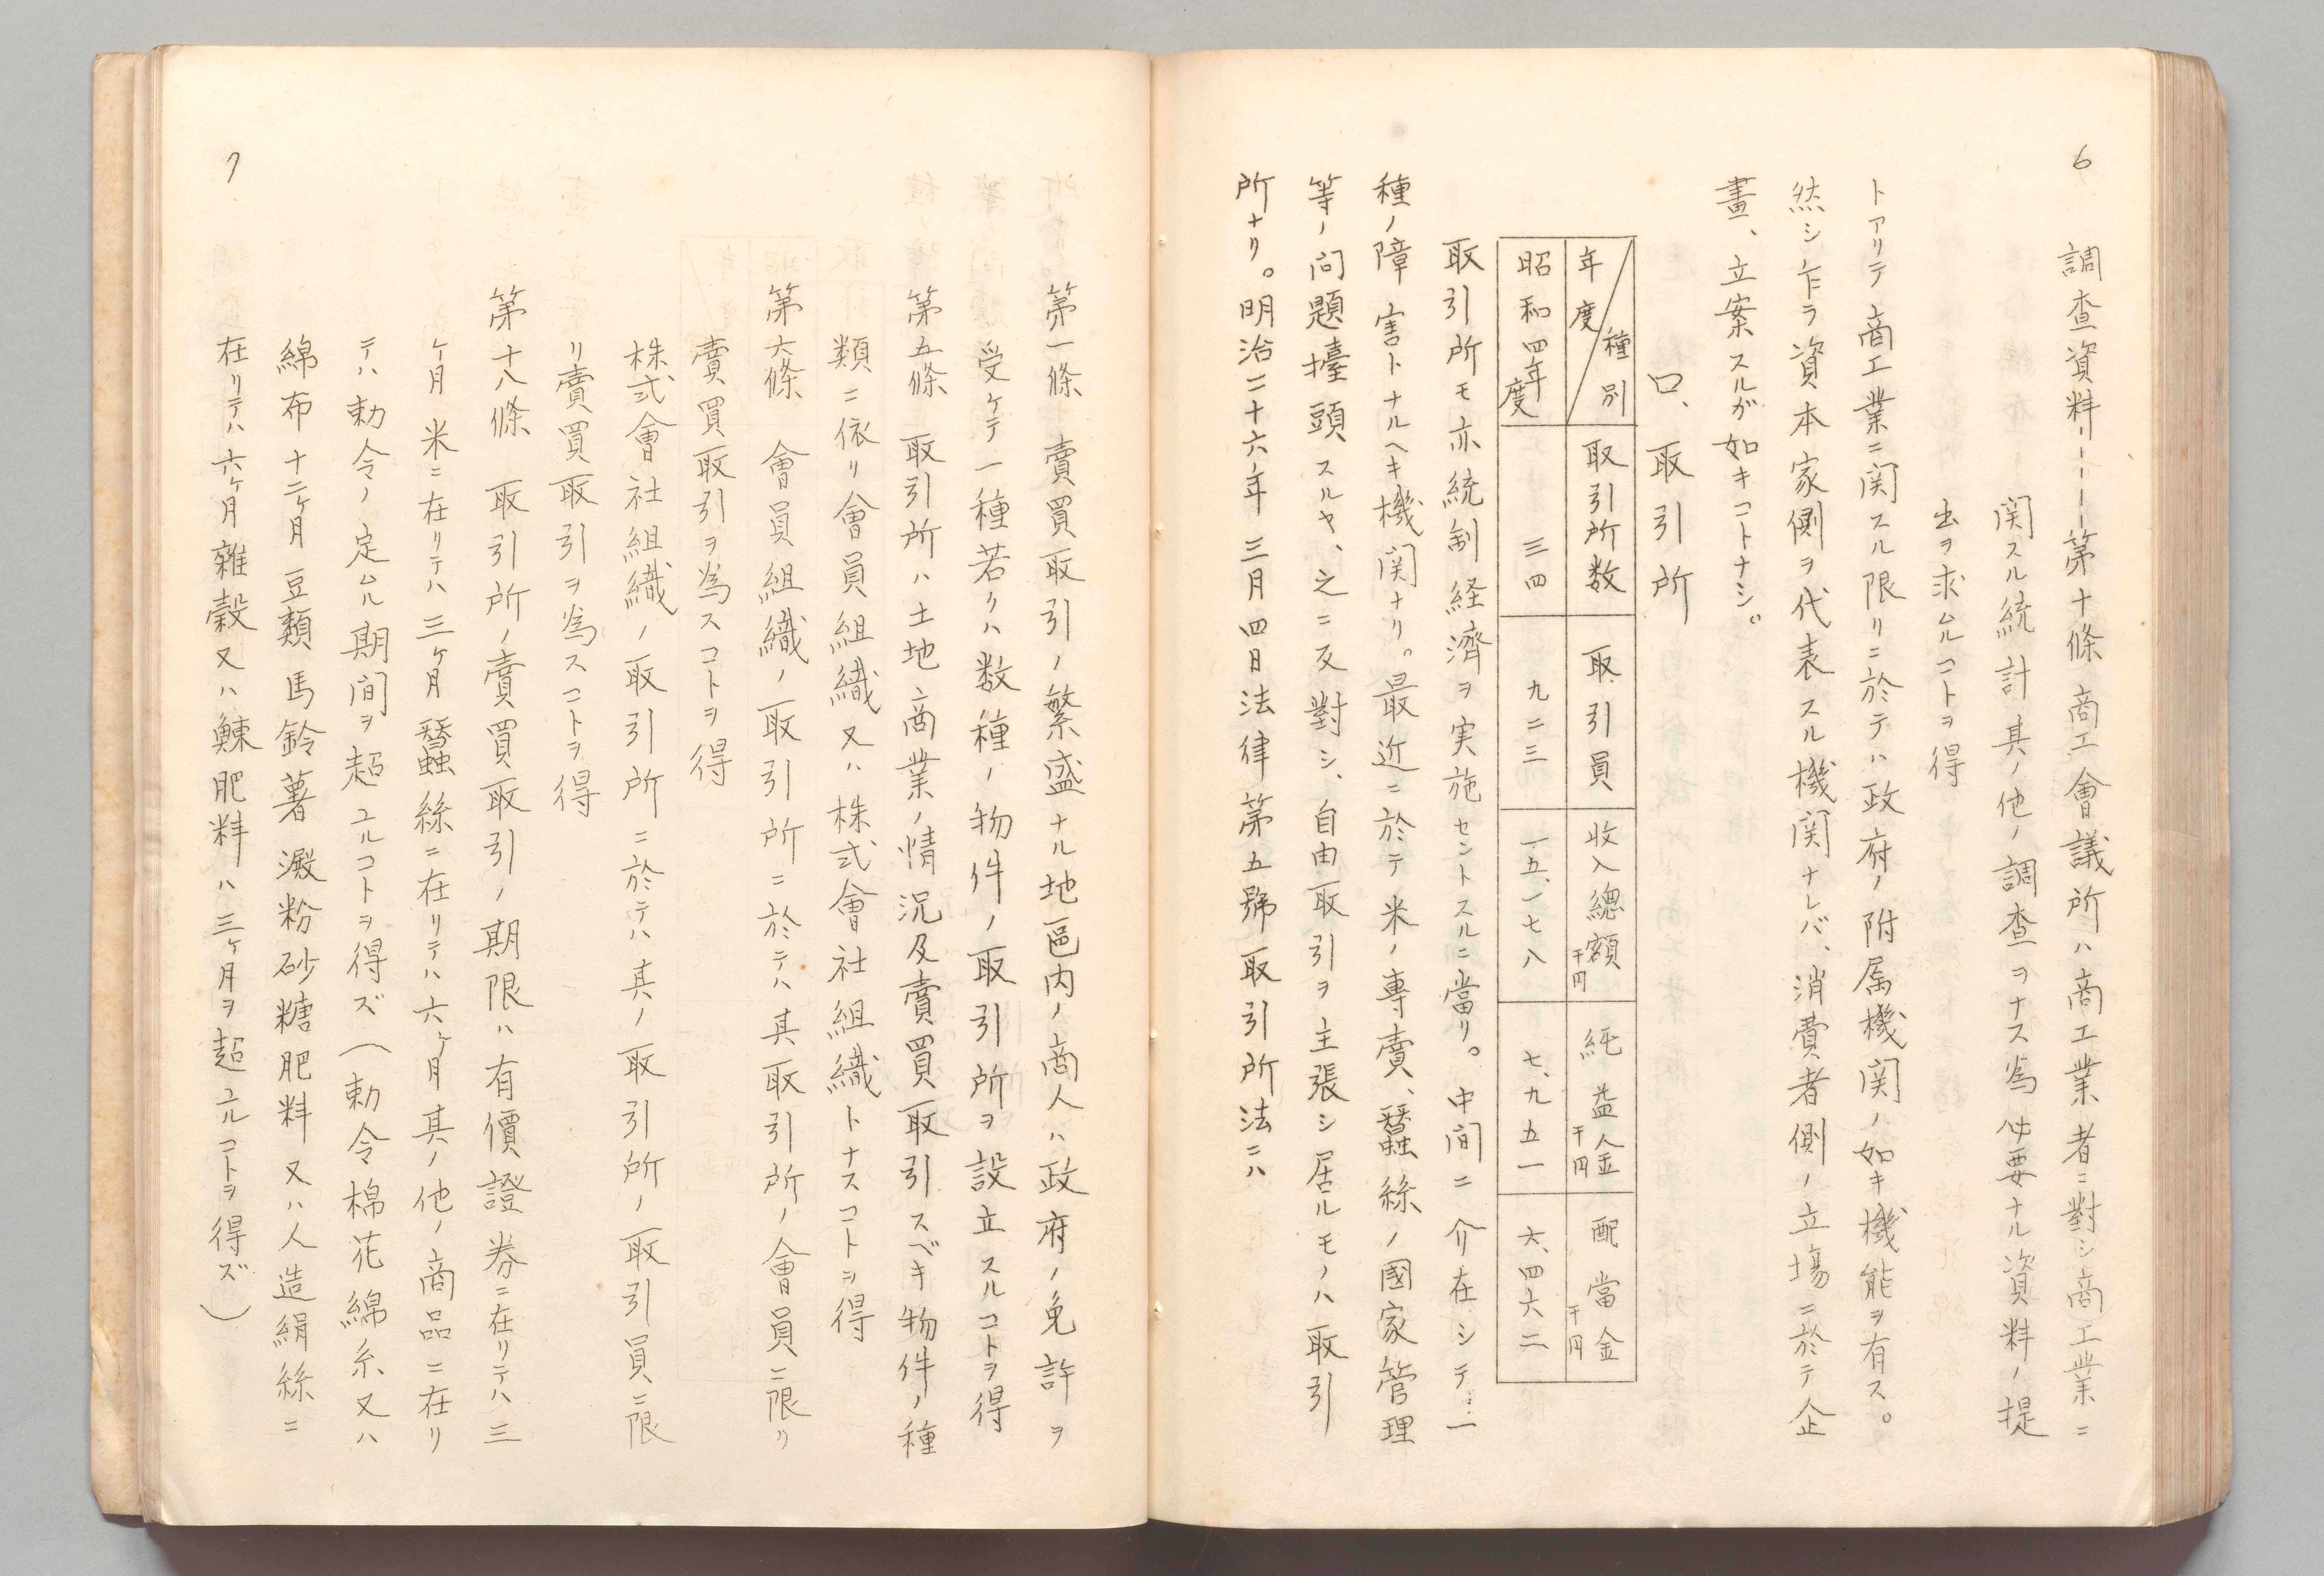 6
調査資料ーーーー第十條 商工會議所ハ商工業者ニ對シ商工業ニ
関スル統計其ノ他ノ調査ヲナス為必要ナル資料ノ提
出ヲ求ムルコトヲ得
トアリテ商工業ニ関スル限リニ於テハ政府ノ附属機関ノ如キ機能ヲ有ス。
然シ乍ラ資本家側ヲ代表スル機関ナレバ、消費者側ノ立場ニ於テ企
畫、立案スルガ如キコトナシ。
ロ、取引所
年度 種別 取引所数 取引員 收入總額千円 純益金千円 配當金千円
昭和四年度 三四 九二三 一五、一七八 七、九五一 六、四六二
取引所モ亦統制経済ヲ実施セントスルニ當リ。中間ニ介在シテ一
種ノ障害トナルヘキ機関ナリ。最近ニ於テ米ノ專賣、蠶絲ノ國家管理
等ノ問題擡頭スルヤ、之ニ反對シ、自由取引ヲ主張シ居ルモノハ取引
所ナリ。明治二十六年三月四日法律第五號取引所法ニハ
第一條 賣買取引ノ繁盛ナル地區内ノ商人ハ政府ノ免許ヲ
受ケテ一種若クハ数種ノ物件ノ取引所ヲ設立スルコトヲ得
第五條 取引所ハ土地商業ノ情況及賣買取引スベキ物件ノ種
類ニ依リ會員組織又ハ株式會社組織トナスコトヲ得
第六條 會員組織ノ取引所ニ於テハ其取引所ノ會員ニ限リ
賣買取引ヲ為スコトヲ得
株式會社組織ノ取引所ニ於テハ其ノ取引所ノ取引員ニ限
リ賣買取引ヲ為スコトヲ得
第十八條 取引所ノ賣買取引ノ期限ハ有價證券ニ在リテハ三
ヶ月米ニ在リテハ三ヶ月蠶絲ニ在リテハ六ヶ月其ノ他ノ商品ニ在リ
テハ勅令ノ定ムル期間ヲ超ユルコトヲ得ズ(勅令棉花綿糸又ハ
綿布十二ヶ月豆類馬鈴薯澱粉砂糖肥料又ハ人造絹絲ニ
在リテハ六ヶ月雜穀又ハ鰊肥料ハ三ヶ月ヲ超ユルコトヲ得ズ)
7